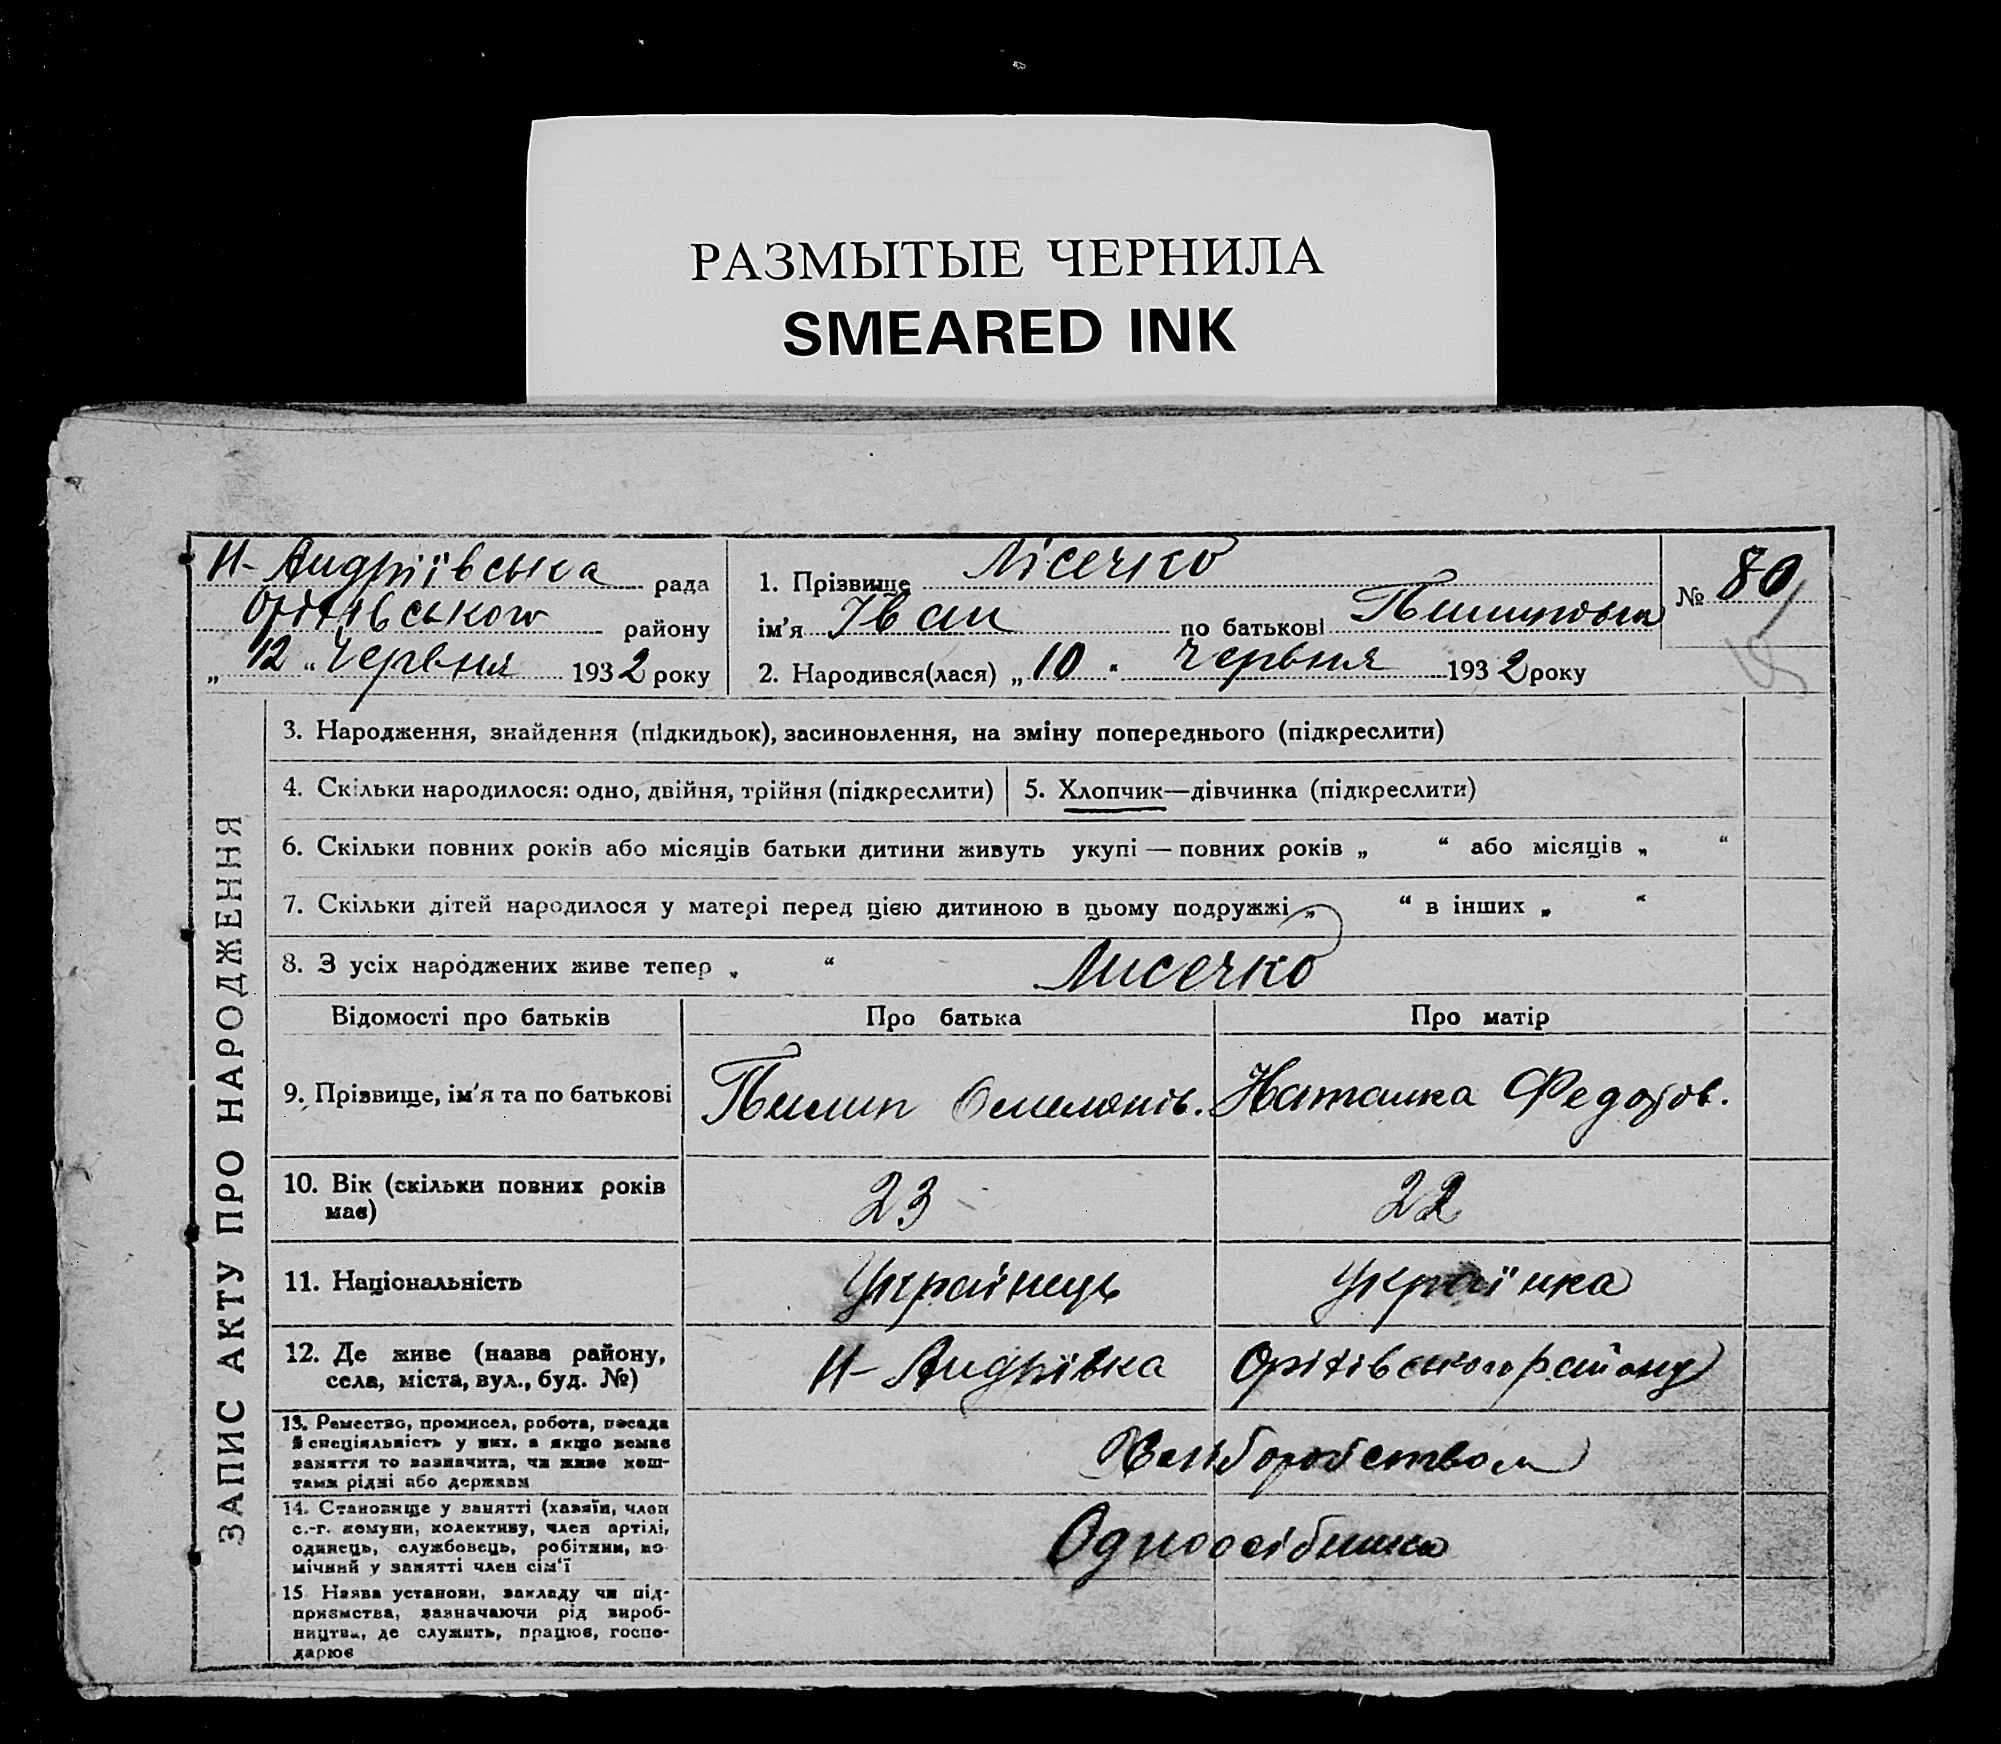 РАЗМЫТЫЕ ЧЕРНИЛА
SMEARED INK
Н-Андріївська рада
Оріхівського району
„12“ Червня 1932 року
1. Прізвище Лісечко
ім'я Іван по батькові Пилипович
№ 80
2. Народився(лася) „10“ Червня 1932 року
ЗАПИС АКТУ ПРО НАРОДЖЕННЯ
3. Народження, знайдення (підкидьок), засиновлення, на зміну попереднього (підкреслити)
4. Скільки народилося: одно, двійня, трійня (підкреслити) 5. Хлопчик—дівчинка (підкреслити)
6. Скільки повних років або місяців батьки дитини живуть укупі — повних років „ “ або місяців „ “
7. Скільки дітей народилося у матері перед цією дитиною в цьому подружжі „ “ в інших „ “
8. З усіх народжених живе тепер „ “ Лисечко
Відомості про батьків Про батька Про матір
9. Прізвище, ім'я та по батькові Пилип Омелянів. Наталка Федорів.
10. Вік (скільки повних років
має) 23 22
11. Національність Українець Українка
12. Де живе (назва району,
села, міста, вул., буд. №) Н-Андрівка Оріхівського району
13. Ремество, промисел, робота, посада
й спеціяльність у них, а якщо немає
заняття то зазначити, чи живе кош-
тами рідні або держави
Хліборобством
14. Становище у занятті (хазяїн, член
с.-г. комуни, колективу, член артілі,
одинець, службовець, робітник, по-
мічний у занятті член сім'ї
Одноосібники
15 Назва установи, закладу чи під-
приємства, зазначаючи рід вироб-
ництва, де служить, працює, госпо-
дарює